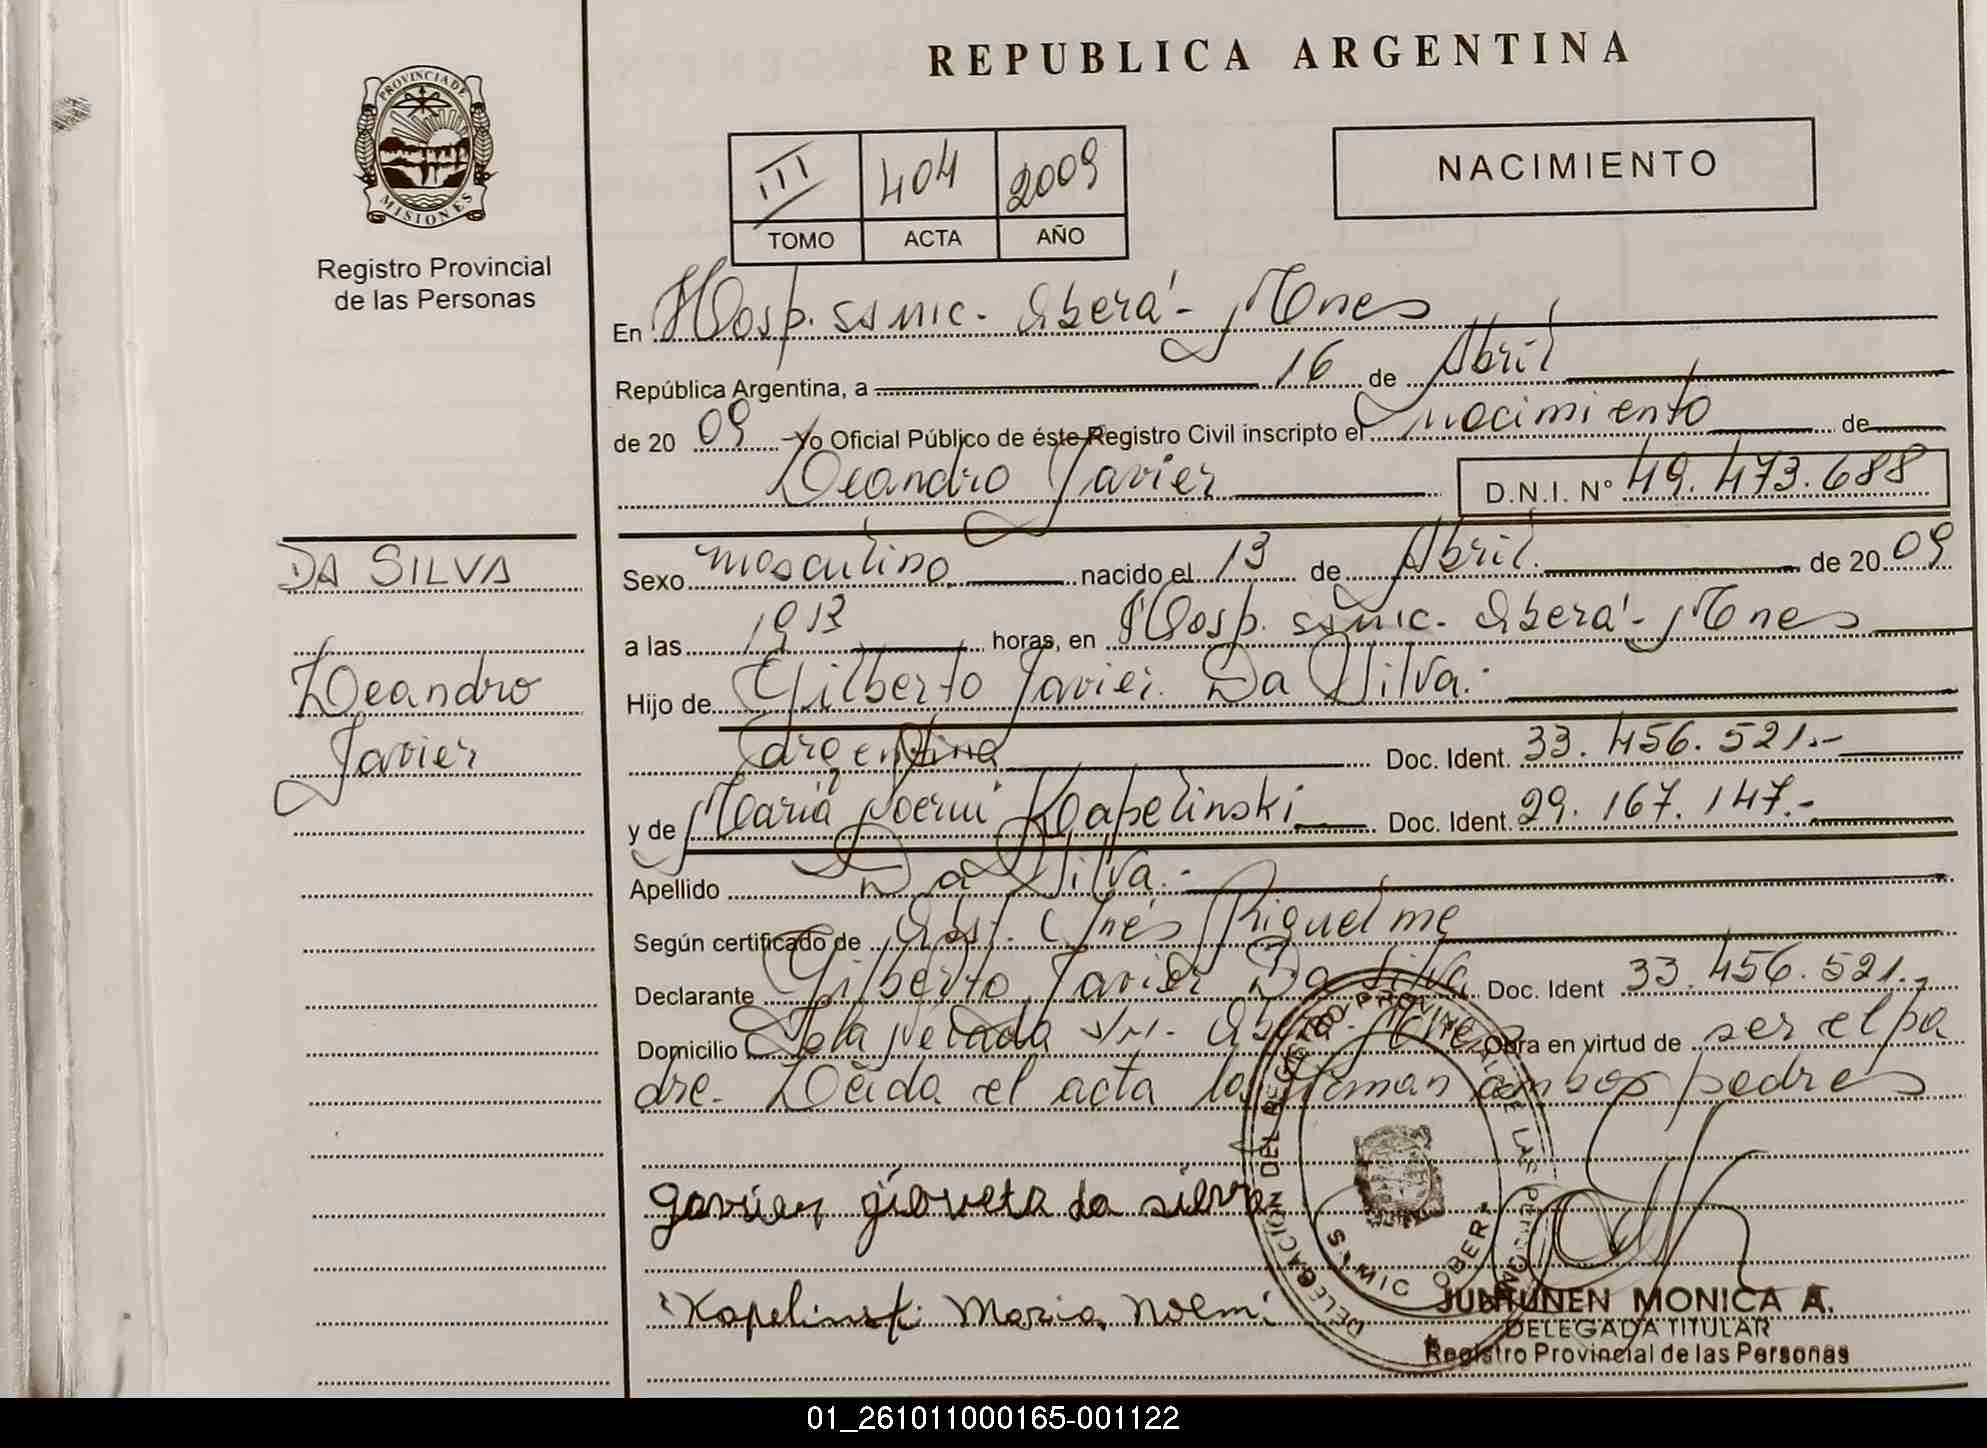 REPUBLICA ARGENTINA
PROVINCIA DE
MISIONES
Registro Provincial
de las Personas
III 404 2009
TOMO ACTA AÑO
NACIMIENTO
En Hosp. SSMIC. Oberá - Mnes
República Argentina, a 16 de Abril
de 20 09 Yo Oficial Público de éste Registro Civil inscripto el nacimiento de
Leandro Javier D.N.I. N° 49.473.688
DA SILVA
Leandro
Javier
Sexo masculino nacido el 13 de Abril. de 20 09
a las 1913 horas, en Hosp. SSMIC. Oberá - Mnes
Hijo de Gilberto Javier Da Silva.
argentina Doc. Ident. 33.456.521.-
y de Maria Noemi Kapelinski Doc. Ident. 29.167.147.-
Apellido Da Silva.-
Según certificado de Obst. Inés Riquelme
Declarante Gilberto Javier Da Silva Doc. Ident 33.456.521.-
Domicilio Obra en virtud de ser el pa
dre. Leida el acta la firman ambos padres
da silva
Kapelinski Maria Noemi
DELEGACIÓN DEL REGISTRO PROVINCIAL DE LAS PERSONAS
OBERÁ
JUNTUNEN MONICA A.
DELEGADA TITULAR
Registro Provincial de las Personas
01_261011000165-001122